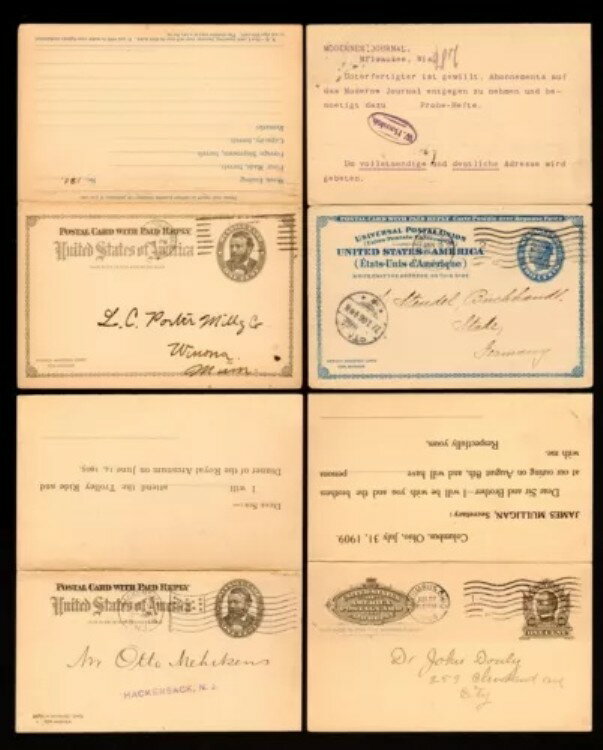 No. 181.
Week Ending
Flour Made, barrels
Foreign Shipments, barrels
Capacity, barrels
Remarks:
POSTAL CARD WITH PAID REPLY
United States of America
L. C. Porter Millg Co
Winona
Minn
MODERNES JOURNAL.
Milwaukee, Wis.
Unterfertigter ist gewillt, Abonnements auf
das Moderne Journal entgegen zu nehmen und be-
noetigt dazu Probe-Hefte.
Um vollstaendige und deutliche Adresse wird
gebeten.
POSTAL CARD WITH PAID REPLY
UNIVERSAL POSTAL UNION
(Union Postale Universelle)
UNITED STATES OF AMERICA
(États-Unis d'Amérique)
Stendel, Buchhandt.
Germany
Dear Sir:—
I will attend the Trolley Ride and
Dinner of the Royal Arcanum on June 14, 1905.
POSTAL CARD WITH PAID REPLY
United States of America
Mr Otto Mehrtens
HACKENSACK, N. J.
Columbus, Ohio, July 31, 1909.
JAMES MULLIGAN, Secretary:
Dear Sir and Brother—I will be with you and the brothers
at our outing on August 8th, and will have persons
with me.
Respectfully yours,
UNITED STATES
OF AMERICA
POSTAL CARD
ONE CENT
Dr John Douly
259 Cleveland ave
City